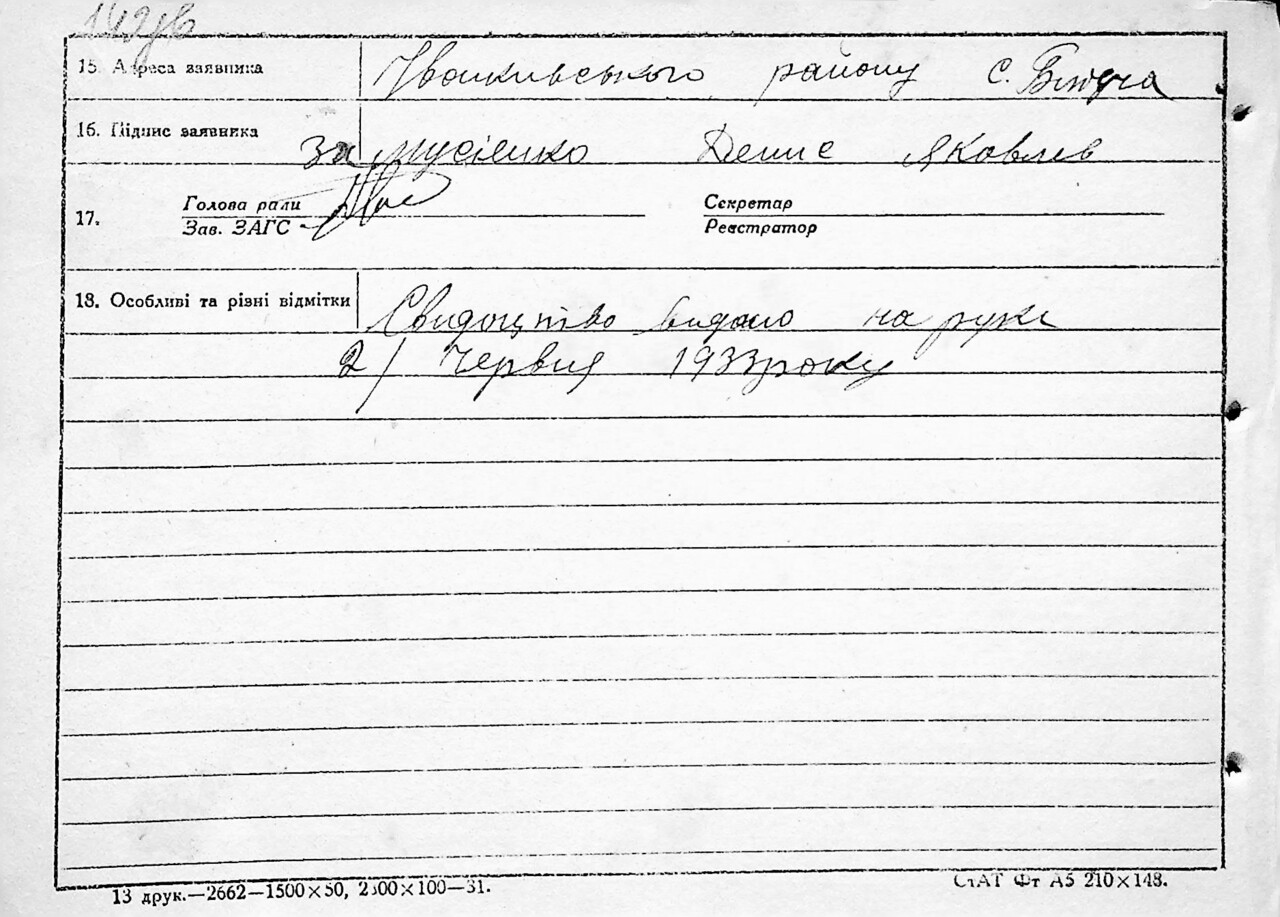 142зв
15. Адреса заявника Іванкивського району с.
16. Підпис заявника за Мусіенко Денис Яковлев
Голова ради Секретар
17.
Зав. ЗАГС Реєстратор
18. Особливі та різні відмітки Свидоцтво видано на руки
2/ червня 1933 року
13 друк.—2662—1500×50, 2300×100—31. СтАТ Фт А5 210×148.